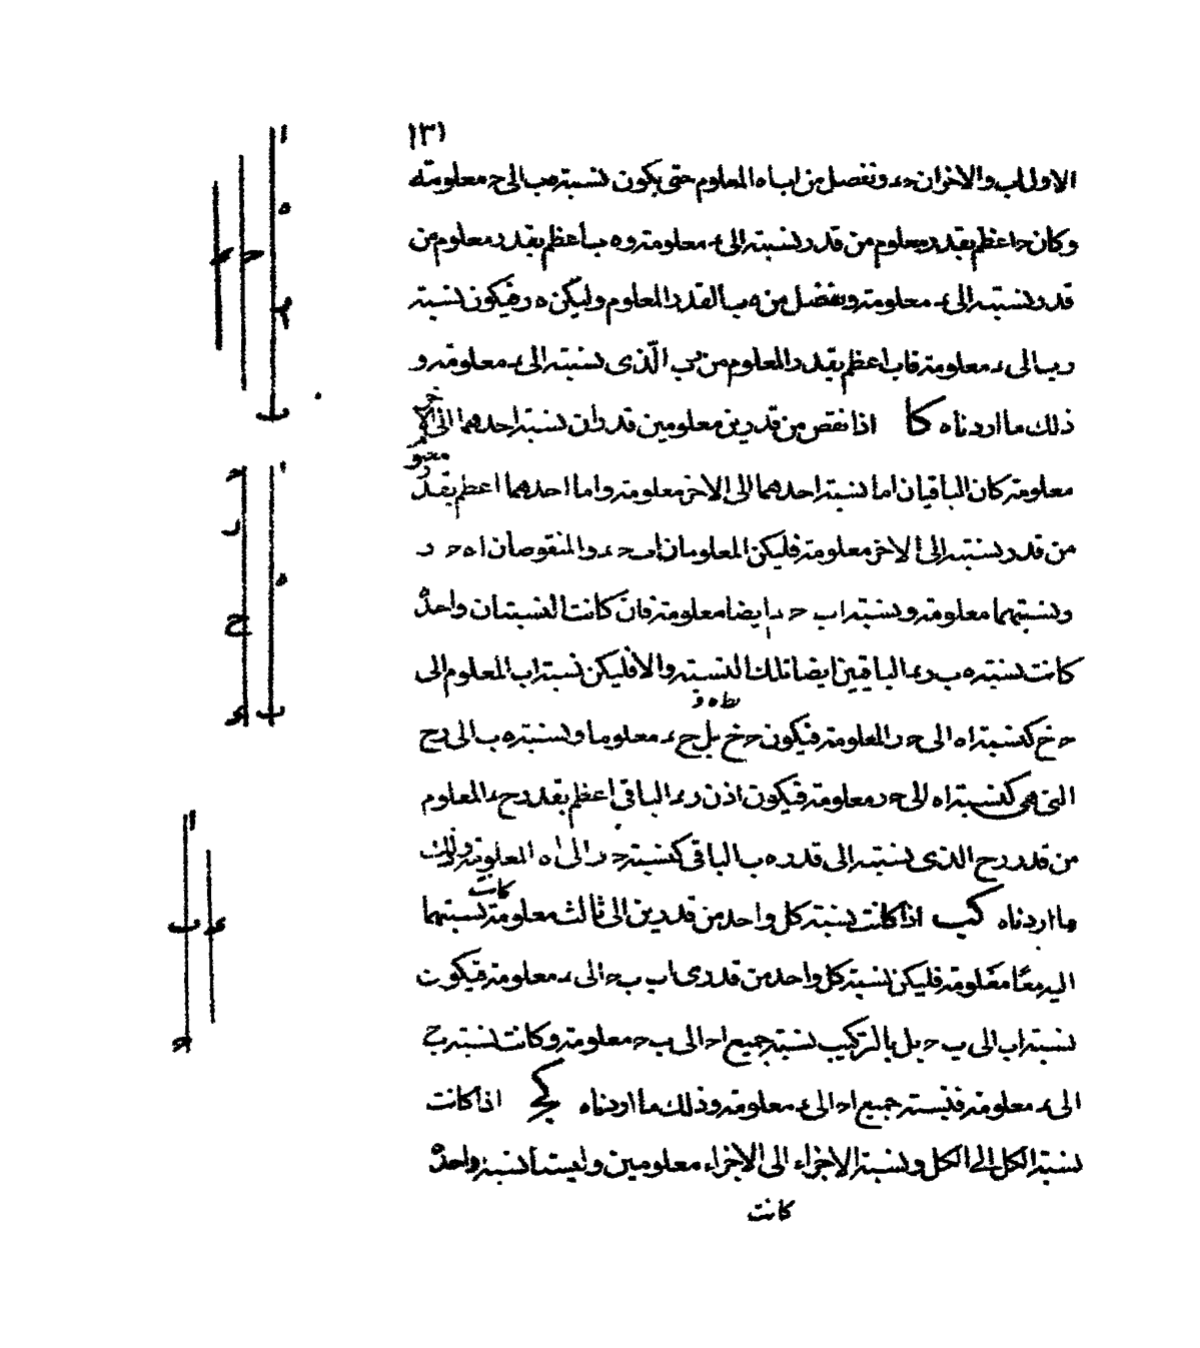 ١٣١
الاول اب والاخران حء ونفصل من اب اه المعلوم حتى يكون نسبة هب الى ح معلومة
وكان ح اعظم بقدر معلوم من قدر نسبته الى ء معلومة وه ب اعظم بقدر معلوم من
قدر نسبته الى ء معلومة ونفضل من ه ب القدر المعلوم وليكن ه ر فيكون نسبة
رب الى ء معلومة فاب اعظم بقدر المعلوم من رب الّذى نسبته الى ء معلومة و
ذلك ما اردناه كا اذا نقص من قدرين معلومين قدران نسبة احدهما الى الاخر
معلومة كان الباقيان اما نسبة احدهما الى الاخر معلومة واما احدهما اعظم بقدر معلوم
من قدر نسبته الى الاخر معلومة فليكن المعلومان اب حء والمنقوصان اه ح ر
ونسبتهما معلومة ونسبة اب حء ايضا معلومة فان كانت النسبتان واحدة
كانت نسبة ه ب رء الباقيين ايضا تلك النسبة والا فليكن نسبة اب المعلوم الى
ح ح كنسبة اه الى ح ر المعلومة فيكون ح ح بل ح ء معلوما ونسبة ه ب الى رح
التى هى كنسبة اه الى ح ر معلومة فيكون اذن رء الباقى اعظم بقدر ح ء المعلوم
من قدر رح الذى نسبته الى قدر ه ب الباقى كنسبة ح ر الى اه المعلومة وذلك
ما اردناه كب اذا كانت نسبة كل واحد من قدرين الى ثالث معلومة كانت نسبتهما
اليه معًا معلومة فليكن نسبة كل واحد من قدرى اب ب ح الى ء معلومة فيكون
نسبة اب الى ب ح بل بالتركيب نسبة جميع اح الى ب ح معلومة وكانت نسبة ب ح
الى ء معلومة فنسبة جميع اح الى ء معلومة وذلك ما اردناه كج اذا كانت
نسبة الكل الى الكل ونسبة الاجزاء الى الاجزاء معلومين وليستا نسبة واحدة
كانت